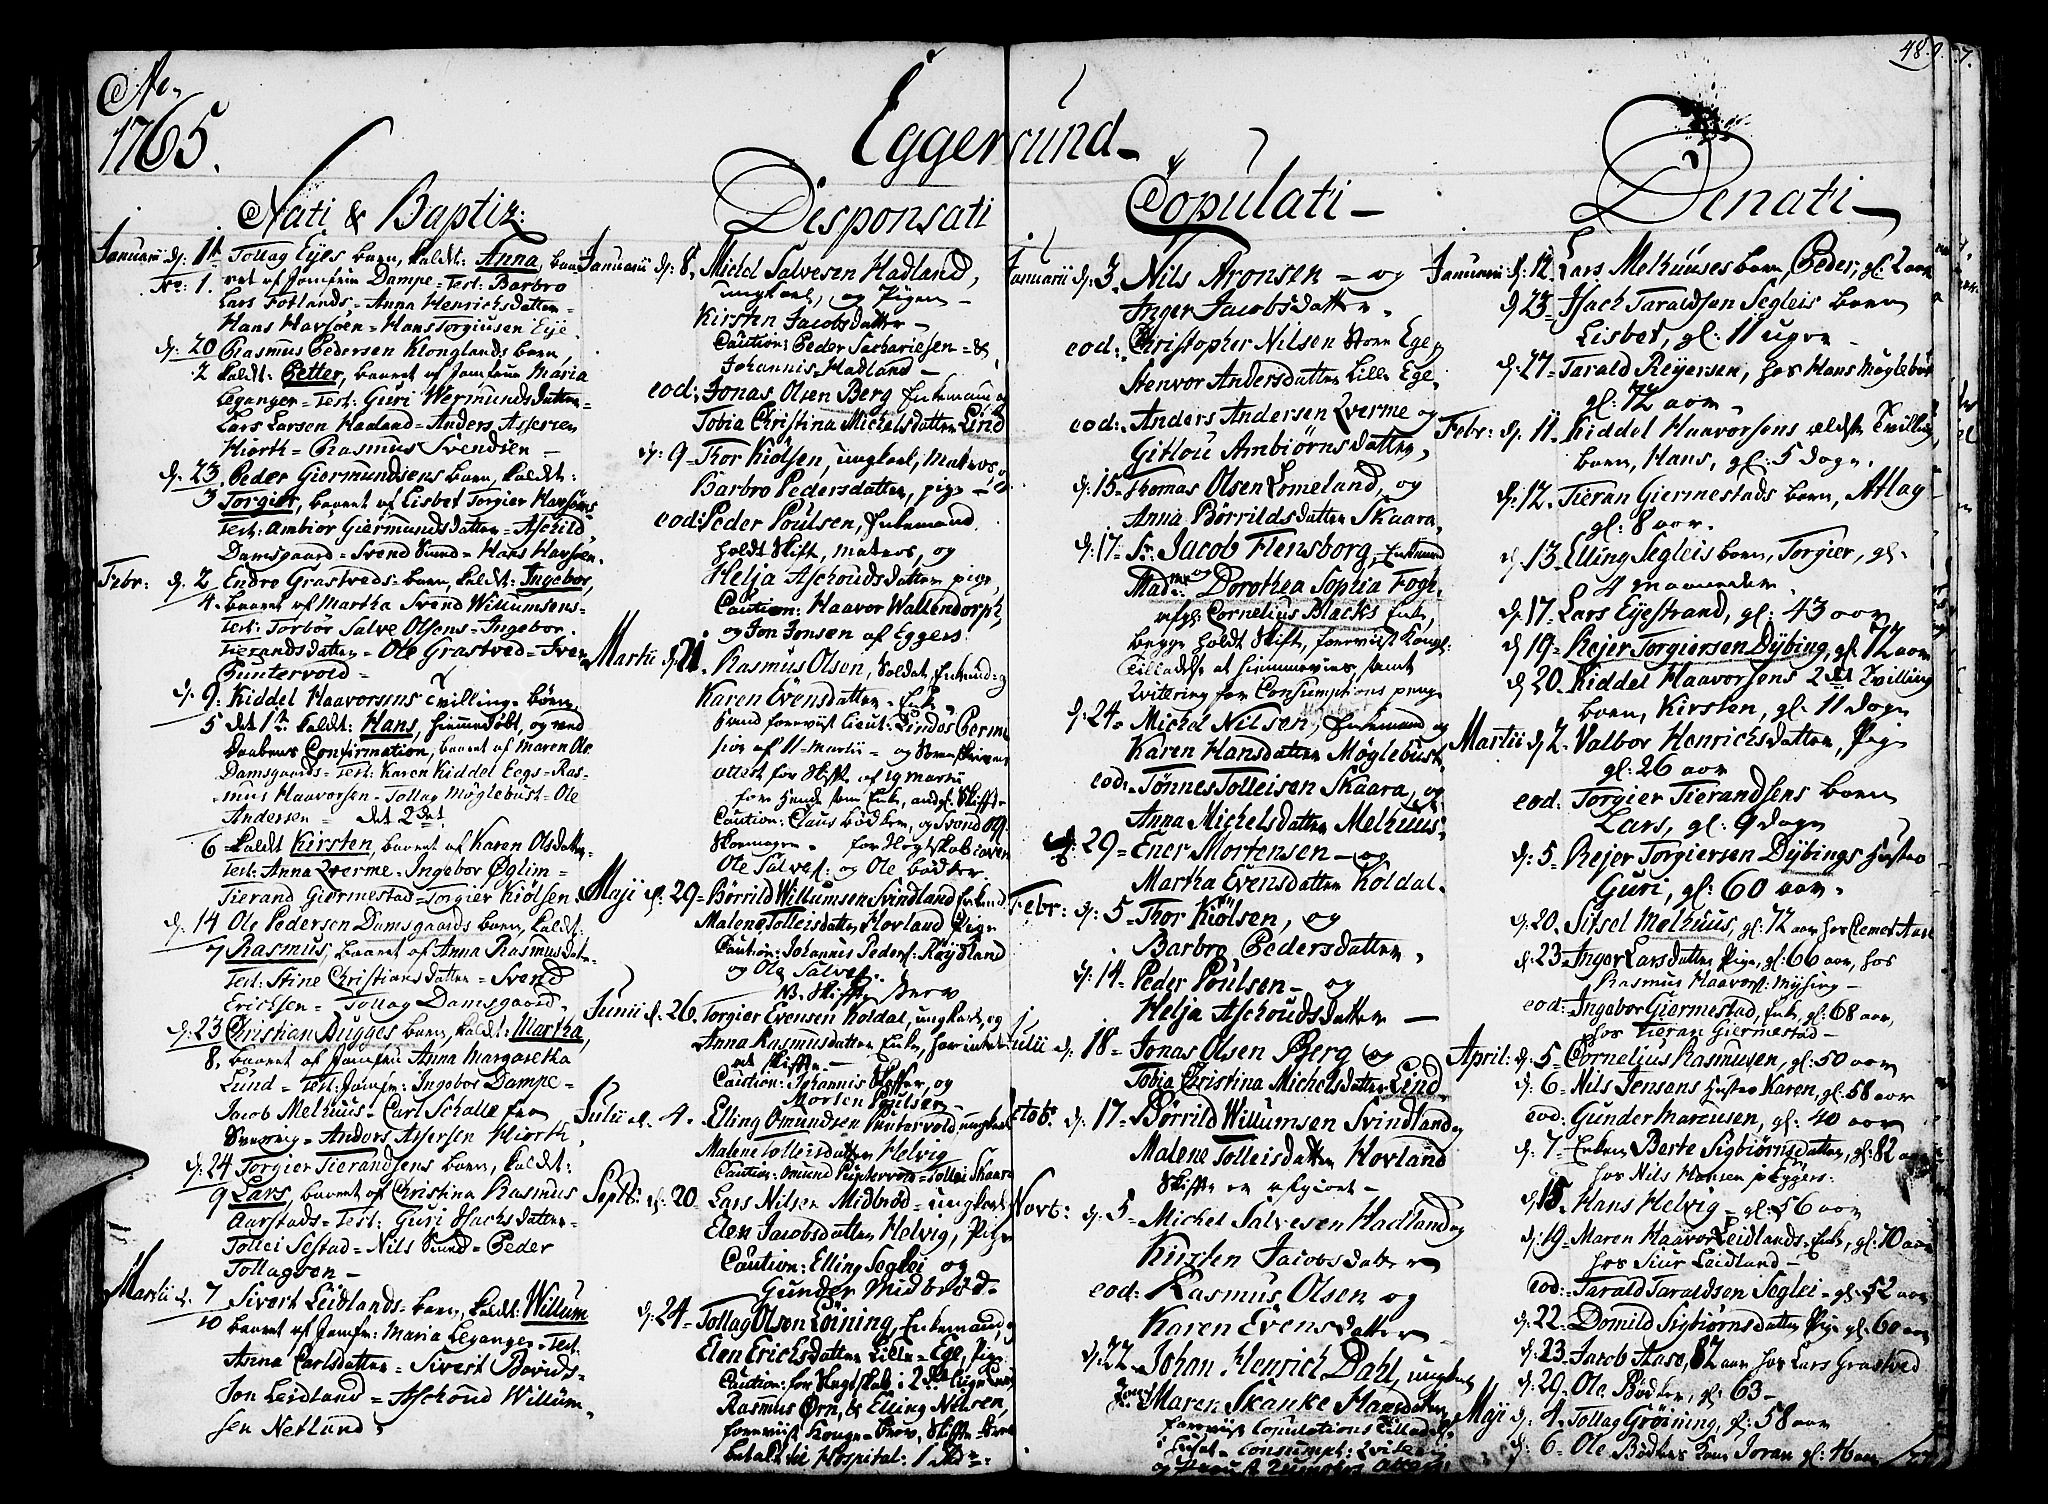 Ao.
1765.
Eggersund
489.
Nati & Baptiz:
Januarii d: 11 Tollag Eyes barn, kaldt: Anna,
No: 1. af Jomfrue Dampe = Test: Barbro
Lars Fotlands = Anna Henrichsdatter =
Hans Havsøen = Hans Torgiusen Eye.
d: 20 Rasmus Pedersen Klonglands barn,
2 kaldt: Petter, baaret af Jomfrue Maria
Leganger = Test: Guri Wermundsdatter =
Lars Larsen Haaland = Anders Assersen
Hiorth = Rasmus Svendsen
d: 23. Peder Giermundsens barn, kaldt:
3 Torgier, baaret af Lisbet Torgier Havsøens
Test: Ambiør Giermundsdatter = Aschild
Damsgaard = Svend Sund = Hans Havsøen.
Febr: d. 2 Endre Grastveds barn, kaldt: Ingebor,
4. baaret af Martha Svend Willumsens =
Test: Torbør Salve Olsens = Ingebor
Tierandsdatter = Ole Grastved =
Puntervold =
d: 9. Kiddel Haavorsens Tvilling-børn,
5 det 1te kaldt: Hans, hiemmedøbt, og ved
Daabens Confirmation, baaret af Maren Ole
Damsgaards = Test: Karen Kiddel Eegs = Ras-
mus Haavorsen = Tollag Møglebust = Ole
Andersen = det 2det
6 kaldt Kirsten, baaret af Karen Olsdatter
Test: Anna Qverme = Ingebor Øglim =
Tierand Giermestad = Torgier Kiølsen
d: 14 Ole Pedersen Damsgaards barn, kaldt:
7 Rasmus, baaret af Anna Rasmusdat-
Test: Stine Christiansdatter = Svend
Ericksen = Tollag Damsgaard
d: 23 Christian Bugges barn, kaldt: Martha,
8. baaret af Jomfru Anna Margaretha
Lund = Test: Jomfr: Ingebor Dampe =
Jacob Melhuus = Carl Schalle
= Anders Assersen Hiorth
d: 24 Torgier Tierandsens barn, kaldt:
9 Lars, baaret af Christina Rasmus
Aarstads = Test: Guri Isachsdatter =
Tollei Sestad = Nils Sund = Peder
Tollagsen
Martii d. 7 Sivert Leidlands barn, kaldt: Willum
10 baaret af Jomfr: Maria Leganger = Test:
Anna Carlsdatter = Sivert
Jon Leidland = Aschoud Willum-
sen Netland.
Disponsati
Januarii d: 8. Michel Salvesen Hadland,
ungkarl, og Pigen
Kirsten Jacobsdatter
Caution: Peder Sachariesen = &
Johannis Hadland
eod: Jonas Olsen Berg Enkemand og
Tobia Christina Michelsdatter Lind
d: 9 Thor Kiølsen, ungkarl, Matros, og
Barbro Pedersdatter, pige
eod: Peder Poulsen, Enkemand,
holdt Skift, matros, og
Helja Aschoudsdatter pige,
Caution: Haavor Wallendorph,
og Jon Jonsen af Eggers:
Martii d. 21. Rasmus Olsen, Soldat, Enkemand og
Karen Evensdatter, Enke,
hand foreviist Lieut: Permis-
sion af 11 Martii = og
attest for Skifte af 19 Martii
for hende som Enke,
Caution: Claus Bødker, og Svend
for
Ole Salves: og Ole Bødker.
Maji d. 29 = Børrild Willumsen Svindland Enkemd
Malene Tolleisdatter Hovland Pige
Caution: Johannis Peders: Røydland
og Ole Salves.
NB. Skifte Brev
Junii d. 26. Torgier Evensen Koldal, ungkarl, og
Anna Rasmusdatter Enke, har intet
at skifte
Caution: Johannis og
Morten Poulsen
Julii d. 4. Elling Omundsen Puntervold ungkarl
Malene Tolleisdatter Helvig
Caution: Omund Puntervold = Tollei Skaara
Septbr: d. 20 Lars Nilsen Midbrød = ungkarl
Elen Jacobsdatter Helvig, Pige
Caution: Elling Seglei og
Gunder Midbrød
d: 24 = Tollag Olsen Løining, Enkemand, og
Elen Erichsdatter Lille = Ege, Pige
Caution: for i 2det
Rasmus Ørn, & Elling Nilsen,
foreviist Konge = Brev, Skifte =
betalt til Hospital: 1 Rdr:
Copulati
Januarii d: 3. Nils Aronsen = og
Inger Jacobsdatter.
eod: Christopher Nilsen Store Ege,
Stenvor Andersdatter Lille Ege.
eod: Anders Andersen Qverme og
Gitlou Ambiørnsdatter.
d: 15 = Thomas Olsen Lomeland, og
Anna Børrildsdatter Skaara.
d: 17 = Sr. Jacob Flensborg, Enkemand
og
Madme: Dorothea Sophia Fogh,
afg: Cornelius Blacks Enke,
begge holdt Skifte, foreviist Kongl:
Tilladelse at hiemmevies, samt
Qvitering for Consumptions penge
d: 24 = Michel Nilsen, Enkemand og
Karen Hansdatter Møglebust.
eod: Tønnes Tolleisen Skaara, og
Anna Michelsdatter Melhuus.
d: 29 = Ener Mortensen og
Martha Evensdatter Koldal.
Febr: d: 5 = Thor Kiølsen, og
Barbro Pedersdatter,
d: 14 = Peder Poulsen og
Helja Aschoudsdatter
Julii d: 18 = Jonas Olsen Berg og
Tobia Christina Michelsdatter Lind
Octob: d: 17 = Børrild Willumsen Svindland og
Malene Tolleisdatter Hovland
Skifte er afgiort
Novb: d: 5 = Michel Salvesen Hadland og
Kirsten Jacobsdatter
eod: Rasmus Olsen og
Karen Evensdatter
d: 22 = Johan Henrich Dahl, ungkarl
Maren Skanke Hansdatter
foreviist Copulations Tilladelse
Consumpt: Qvitering
Denati
Januarii d: 12. Lars Melhuuses barn, Peder, gl: 2 aar
d: 23 = Isach Taraldsen Segleis barn
Lisbet, gl: 11 uger
d: 27 = Tarald Reyersen, hos Hans Møglebust
gl: 72 aar.
Febr: d. 11 = Kiddel Haavorsens ældste Tvilling
barn, Hans, gl: 5 dage.
d: 12. Tieran Giermestads barn, Atlag
gl: 8 aar.
d: 13. Elling Segleis barn, Torgier, gl.
4 maaneder
d: 17. Lars Eyestrand, gl: 43 aar
d: 19. Rejer Torgiersen Dybing, gl: 72 aar
d: 20. Kiddel Haavorsens 2det Tvilling
barn, Kirsten, gl: 11 dage
Martii d. 2. Valbor Henrichsdatter, Pige
gl: 26 aar
eod: Torgier Tierandsens barn
Lars, gl: 9 dage
d: 5 = Rejer Torgiersen Dybings hustro
Guri, gl: 60 aar.
d: 20. Sissel Melhuus, gl: 72 aar hos Clemet Aase
d: 23 = Inger Larsdatter Pige, gl: 66 aar, hos
Rasmus Haavors: Mysing
eod: Ingebor Giermestad, Enke, gl: 68 aar,
hos Tieran Giermestad
April: d: 5 = Cornelius Rasmusen, gl: 50 aar
d: 6 = Nils Jensens hustro Karen, gl: 58 aar
eod: Gunder Marcusen, gl: 40 aar
d: 7 = Enken Berte Sigbiørnsdatter, gl: 82 aar
hos Nils Hansen i Eggers:
d: 15 = Hans Helvig = gl: 56 aar
d: 19 = Maren Haavor Leidlands = Enke, gl: 70 aar
hos Siur Leidland
eod: Tarald Taraldsen Seglei = gl: 52 aar
d: 22. Domild Sigbiørnsdatter Pige gl: 60 aar
d: 23 = Jacob Aase, 82 aar hos Lars Grastved
d: 29. Ole Bødker, gl: 63
Maji d: 4. Tollag Grøining, gl: 58 aar
d: 6 = Ole Bødkers Joran gl: 46 aar